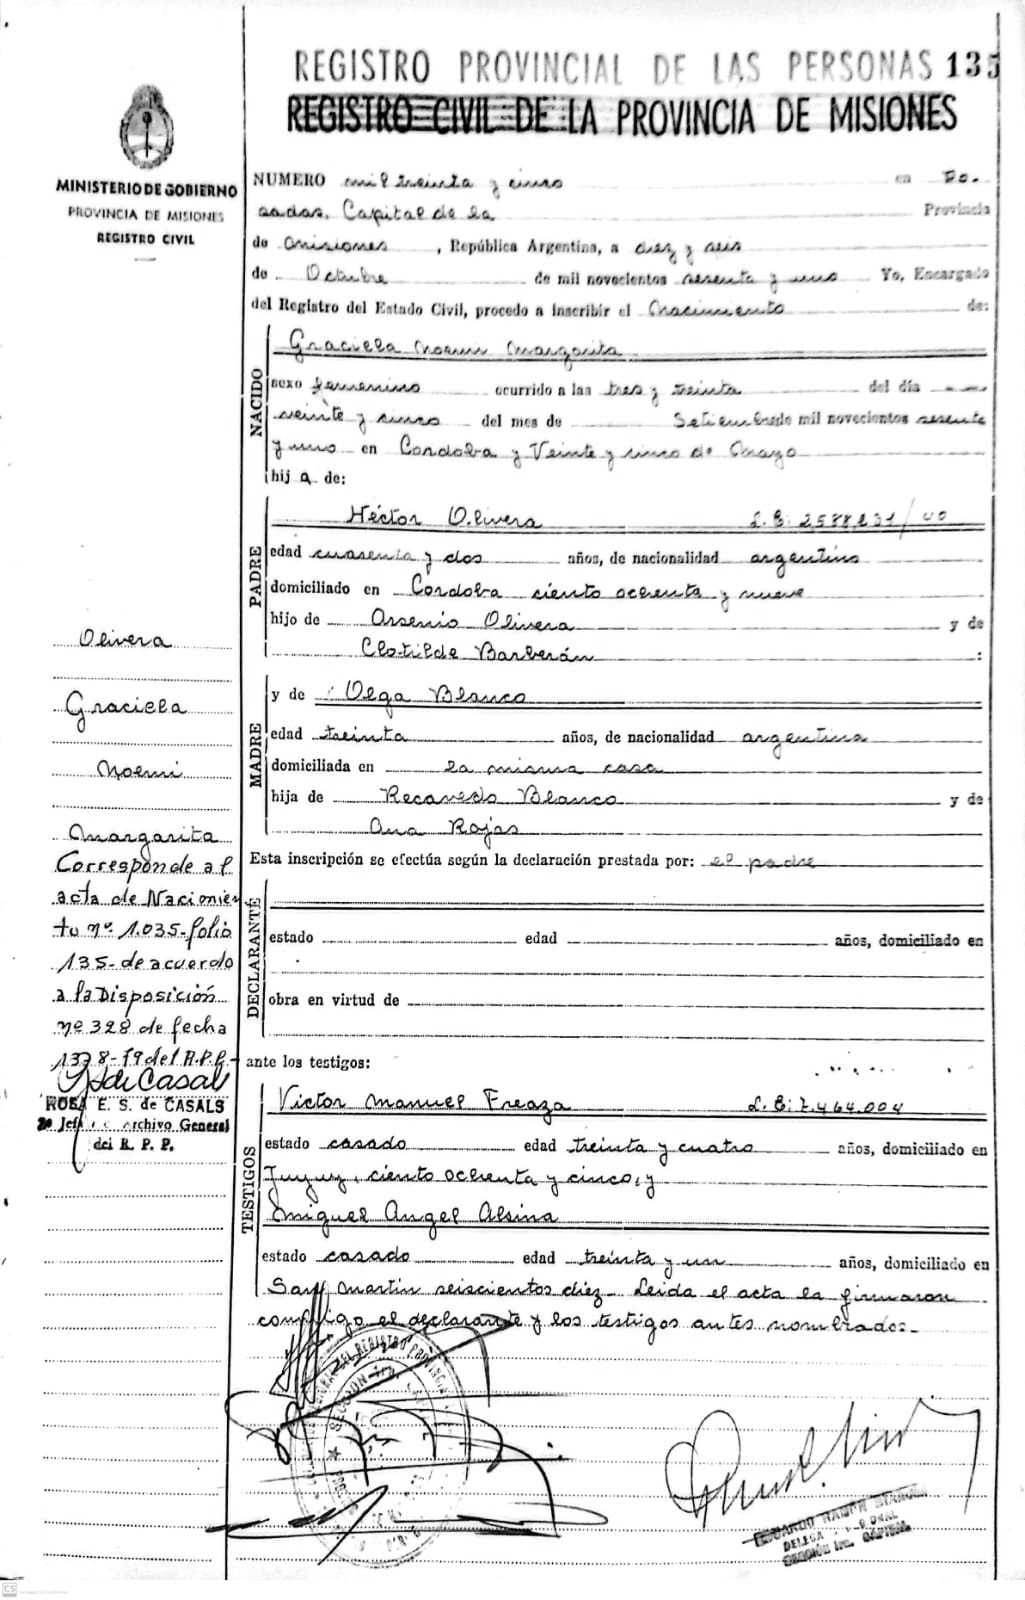 REGISTRO PROVINCIAL DE LAS PERSONAS 135
REGISTRO CIVIL DE LA PROVINCIA DE MISIONES
MINISTERIO DE GOBIERNO
PROVINCIA DE MISIONES
REGISTRO CIVIL
NUMERO mil treinta y cinco en Po-
sadas, Capital de la Provincia
de Misiones, República Argentina, a diez y seis
de Octubre de mil novecientos sesenta y uno Yo, Encargado
del Registro del Estado Civil, procedo a inscribir el Nacimiento de:
NACIDO
Graciela Noemi Margarita
sexo femenino ocurrido a las tres y treinta del día
veinte y cinco del mes de Setiembre de mil novecientos sesenta
y uno en Cordoba y Veinte y cinco de Mayo
hija de:
PADRE
Héctor Olivera L.E: 2588231/
edad cuarenta y dos años, de nacionalidad argentino
domiciliado en Cordoba ciento ochenta y nueve
hijo de Arsenio Olivera y de
Clotilde Barberán :
MADRE
y de : Olga Blanco
edad treinta años, de nacionalidad argentina
domiciliada en la misma casa
hija de Recaredo Blanco y de
Ana Rojas
Esta inscripción se efectúa según la declaración prestada por: el padre
DECLARANTE
estado edad años, domiciliado en
obra en virtud de
ante los testigos:
TESTIGOS
Victor Manuel Freaza L.E: 7.464.004
estado casado edad treinta y cuatro años, domiciliado en
Jujuy, ciento ochenta y cinco, y
Miguel Angel Alsina
estado casado edad treinta y un años, domiciliado en
San Martin seiscientos diez Leida el acta la firmaron
conmigo el declarante y los testigos antes nombrados.-
Olivera
Graciela
Noemi
Margarita
Corresponde al
acta de Nacimien
to nº 1.035-folio
135- de acuerdo
a la Disposición
nº 328 de fecha
ROSA E. S. de CASALS
2º Jefe Archivo General
del R. P. P.
SECCIÓN 1ra. CAPITAL